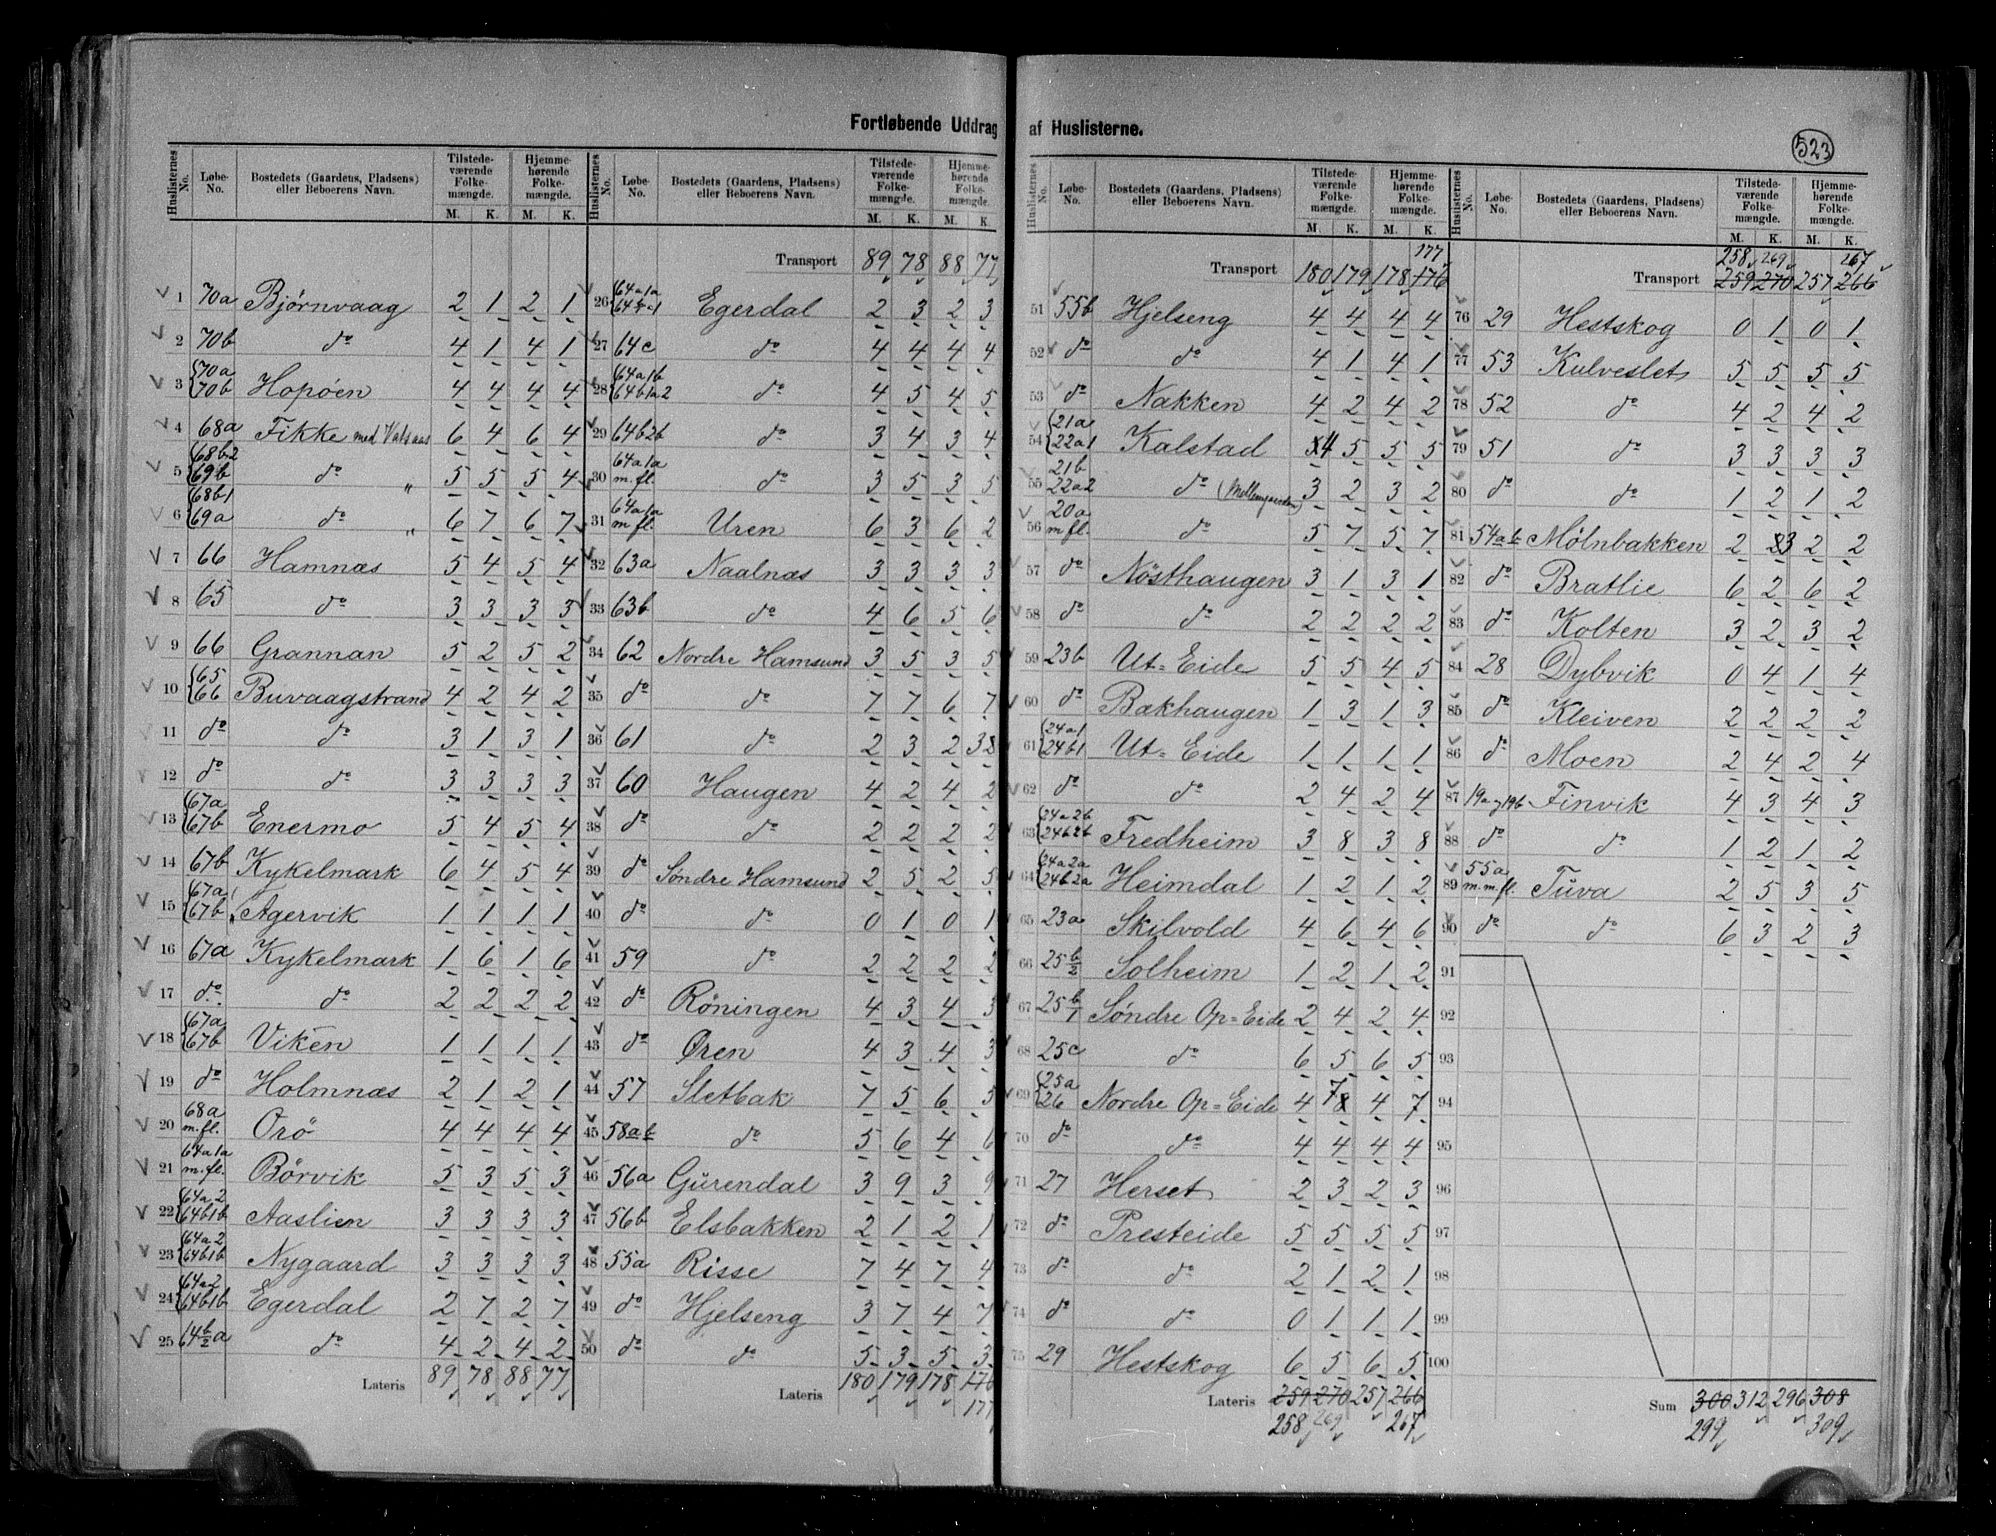 Fortløbende Uddrag af Huslisterne.
523
Huslisternes No. | Løbe-No. | Bostedets (Gaardens, Pladsens) eller Beboerens Navn. | Tilstedeværende Folkemængde. M. K. | Hjemmehørende Folkemængde. M. K.
1 70a Bjørnvaag 2 1 2 1
2 70b do 4 1 4 1
3 70a 70b Hopøen 4 4 4 4
4 68a Fikke med Valsaas 6 4 6 4
5 68b2 69b do " 5 5 5 4
6 68b1 69a do " 6 7 6 7
7 66 Hamnæs 5 4 5 4
8 65 do 3 3 3 3
9 66 Grannan 5 2 5 2
10 65 66 Buvaagstrand 4 2 4 2
11 do do 3 1 3 1
12 do do 3 3 3 3
13 67a 67b Enermo 5 4 5 4
14 67b Kykelmark 6 4 5 4
15 67a 67b Agervik 1 1 1 1
16 67a Kykelmark 1 6 1 6
17 do do 2 2 2 2
18 67a 67b Viken 1 1 1 1
19 do Holmnæs 2 1 2 1
20 68a m.fl. Orö 4 4 4 4
21 64a1a m.fl. Børvik 5 3 5 3
22 64a2 64b1b Aaslien 3 3 3 3
23 64a2 64b1b Nygaard 3 3 3 3
24 64a2 64b1b Egerdal 2 7 2 7
25 64b/2a do 4 2 4 2
Lateris 89 78 88 77
Huslisternes No. | Løbe-No. | Bostedets (Gaardens, Pladsens) eller Beboerens Navn. | Tilstedeværende Folkemængde. M. K. | Hjemmehørende Folkemængde. M. K.
Transport 89 78 88 77
26 64a1a Egerdal 2 3 2 3
27 64c do 4 4 4 4
28 64a1b 64b1a2 do 4 5 4 5
29 64b2b do 3 4 3 4
30 64a1a m.fl. do 3 5 3 5
31 64a1a m fl. Uren 6 3 6 2
32 63a Naalnæs 3 3 3 3
33 63b do 4 6 5 6
34 62 Nordre Hamsund 3 5 3 5
35 do do 7 7 6 7
36 61 do 2 3 2 3
37 60 Haugen 4 2 4 2
38 do do 2 2 2 2
39 do Søndre Hamsund 2 5 2 5
40 do do 0 1 0 1
41 59 do 2 2 2 2
42 do Röningen 4 3 4 3
43 do Øren 4 3 4 3
44 57 Sletbak 7 5 6 5
45 58a b do 5 6 4 6
46 56a Gürendal 3 9 3 9
47 56b Elsbakken 2 1 2 1
48 55a Risse 7 4 7 4
49 do Hjelseng 3 7 4 7
50 do do 5 3 5 3
Lateris 180 179 178 176
177
Huslisternes No. | Løbe-No. | Bostedets (Gaardens, Pladsens) eller Beboerens Navn. | Tilstedeværende Folkemængde. M. K. | Hjemmehørende Folkemængde. M. K.
177
Transport 180 179 178 176
51 55b Hjelseng 4 4 4 4
52 do do 4 1 4 1
53 do Nakken 4 2 4 2
54 21a 22a1 Kalstad 4 5 5 5
55 21b 22a2 do 3 2 3 2
56 20a m fl. do 5 7 5 7
57 do Nösthaugen 3 1 3 1
58 do do 2 2 2 2
59 23b Ut=Eide 5 5 4 5
60 do Bakhaugen 1 3 1 3
61 24a1 24b1 Ut=Eide 1 1 1 1
62 do do 2 4 2 4
63 24a2b 24b2b Fredheim 3 8 3 8
64 24a2a 24b2a Heimdal 1 2 1 2
65 23a Skilvold 4 6 4 6
66 25b/2 Solheim 1 2 1 2
67 25b/1 Søndre Op=Eide 2 4 2 4
68 25c do 6 5 6 5
69 25a 26 Nordre Op=Eide 4 7 4 7
70 do do 4 4 4 4
71 27 Herset 2 3 2 3
72 do Presteide 5 5 5 5
73 do do 2 1 2 1
74 do do 0 1 1 1
75 29 Hestskog 6 5 6 5
Lateris 259 270 257 266
258 269 267
Huslisternes No. | Løbe-No. | Bostedets (Gaardens, Pladsens) eller Beboerens Navn. | Tilstedeværende Folkemængde. M. K. | Hjemmehørende Folkemængde. M. K.
258 269 267
Transport 259 270 257 266
76 29 Hestskog 0 1 0 1
77 53 Kulveslet 5 5 5 5
78 52 do 4 2 4 2
79 51 do 3 3 3 3
80 do do 1 2 1 2
81 54a b Mølnbakken 2 3 2 2
82 do Bratlie 6 2 6 2
83 do Kolten 3 2 3 2
84 28 Dybvik 0 4 1 4
85 do Kleiven 2 2 2 2
86 do Moen 2 4 2 4
87 19a og 19b Finvik 4 3 4 3
88 do do 1 2 1 2
89 55a m.m.fl. Tüva 2 5 3 5
90 do do 6 3 2 3
91
92
93
94
95
96
97
98
99
100
Sum 300 312 296 308
299 309